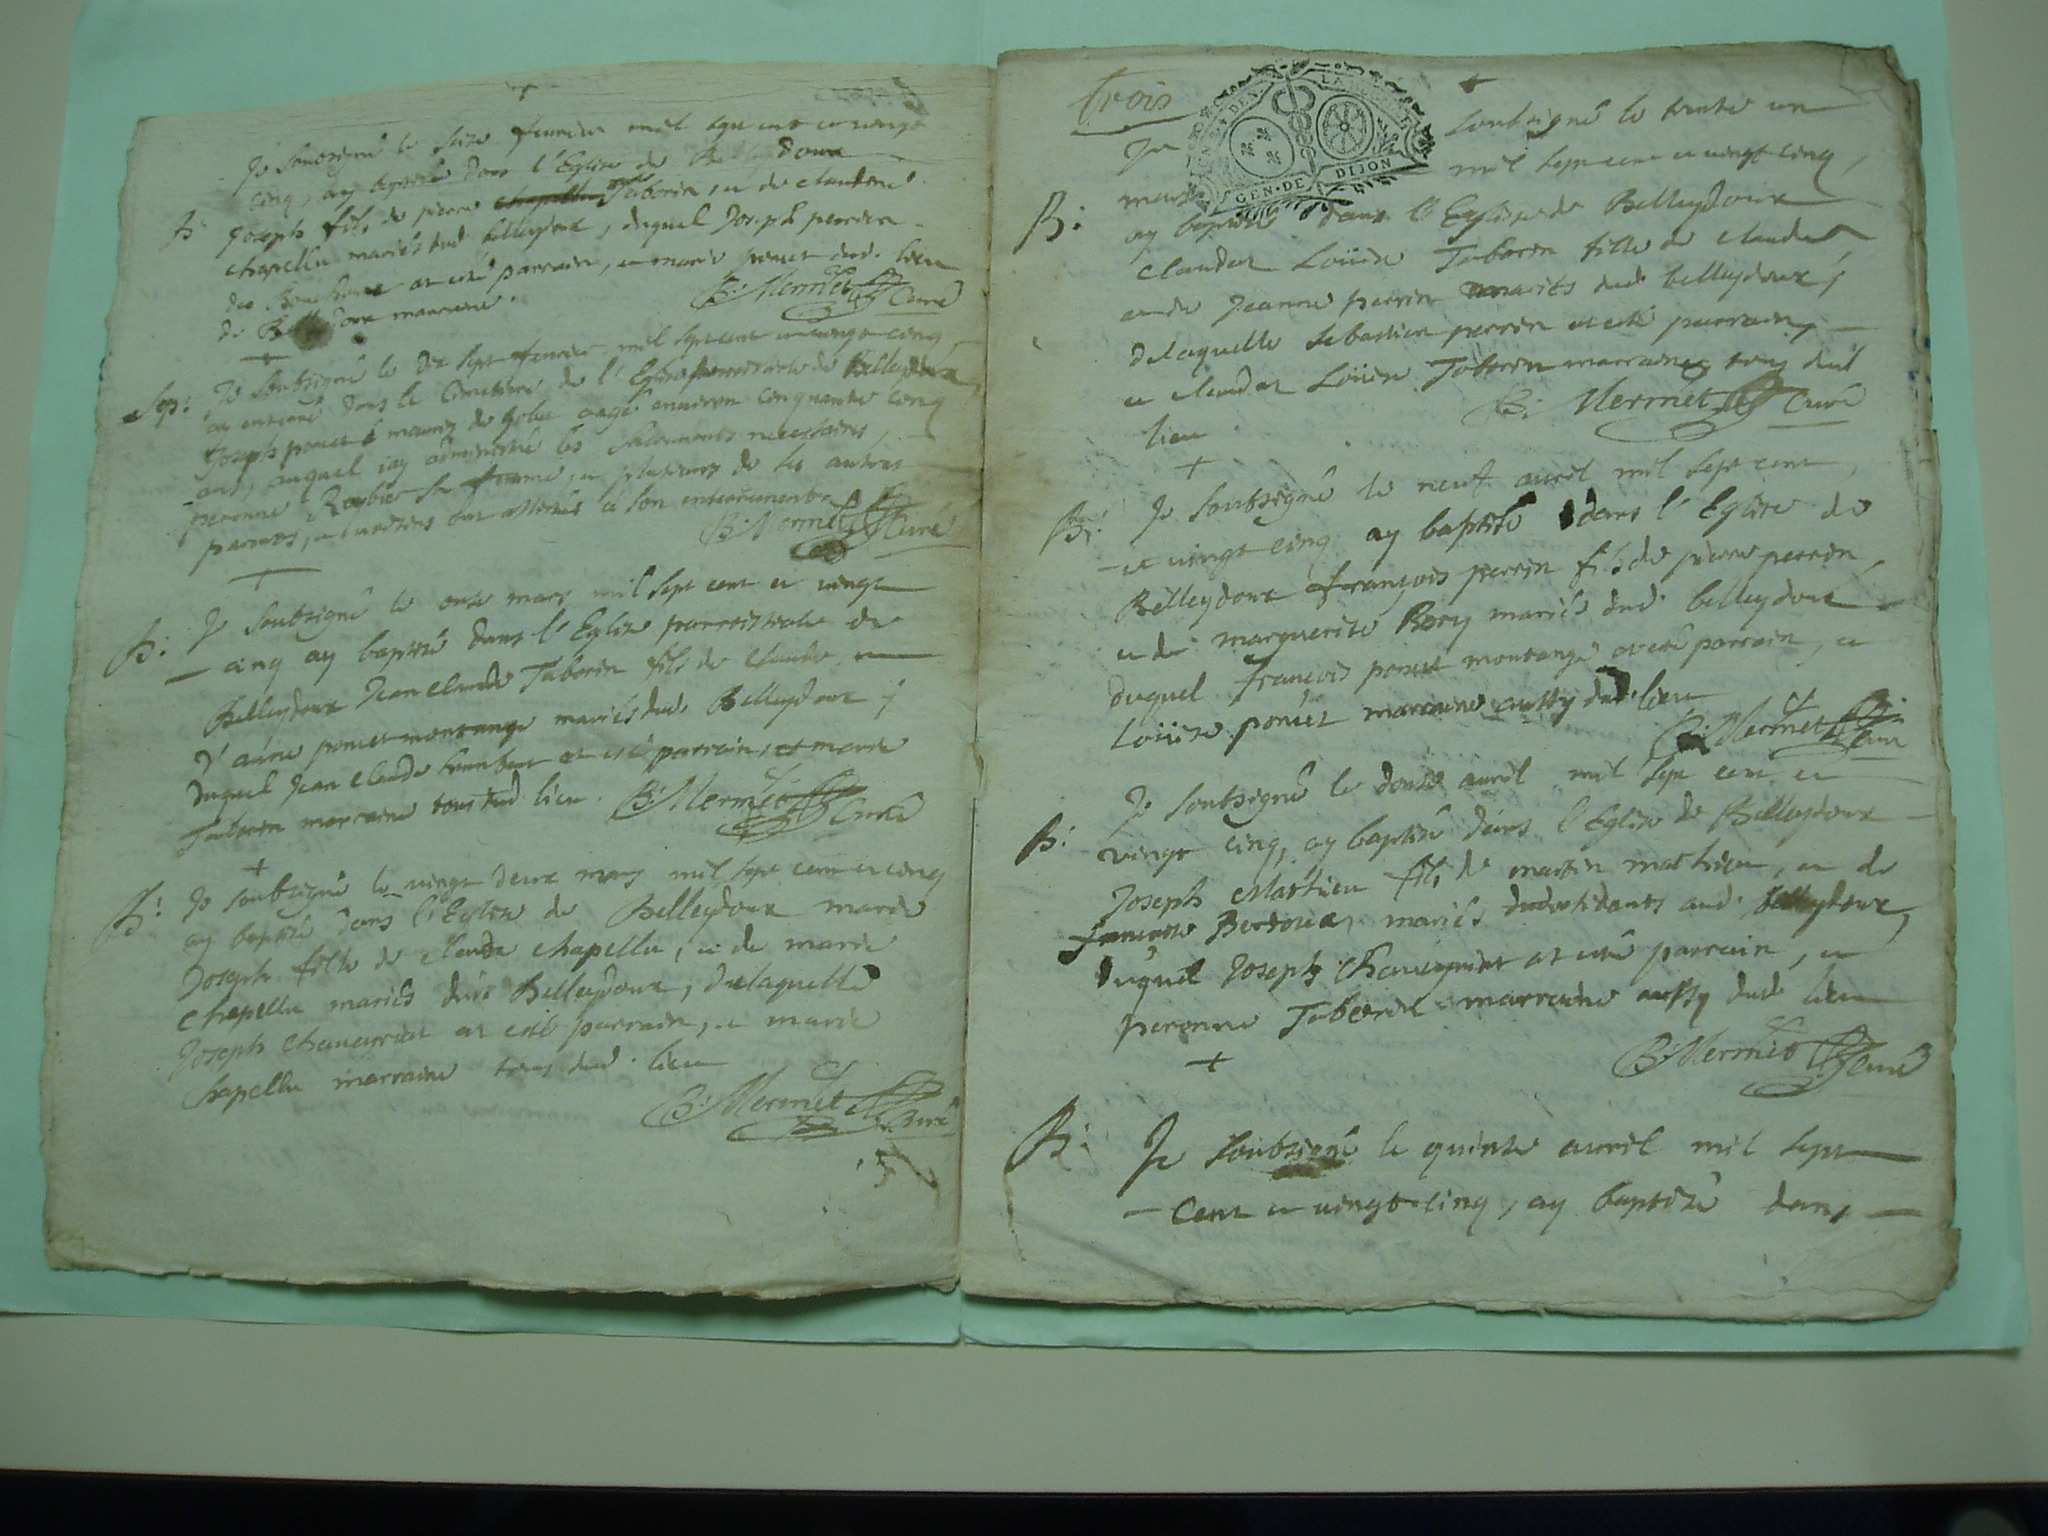 Je soubsigné le seize fevrier mil sept cent et vingt
cinq, ay baptisé dans l'Eglise de Belleydoux
B: Joseph fils de pierre chapellu Taborin, et de claudine
chapellu mariés dud belleydoux, duquel Joseph perrin
des at eté parrain, et marie poncet dud. lieu
de Belleydoux marraine.
B: Mermet Curé
Sep: Je soubsigné le dix sept fevrier mil sept cent et vingt cinq
ay enterré dans le Cimetiere de l'Eglise parroissiale de Belleydoux
Joseph poncet agé environ cinquante cinq
ans, auquel j'ay administré les sacrements necessaires,
peronne sa femme, et plusieurs de ses autres
parents, et voisins ont assistés à son enterrement.
B: Mermet Curé
B: Je soubsigné le onze mars mil sept cent et vingt
cinq ay baptisé dans l'Eglise parroissiale de
Belleydoux Jean claude Taborin fils de claude, et
d'anne poncet montange mariés dud Belleydoux;
duquel Jean claude humbert at eté parrain, et marie
Taborin marraine tous dud. lieu. B: Mermet Curé
B: Je soubsigné le vingt deux mars mil sept cent et cinq
ay baptisé dans l'Eglise de Belleydoux marie
Joseph fille de claude chapellu, et de marie
chapellu mariés dud Belleydoux, delaquelle
Joseph at eté parrain, et marie
Chapellu marraine tous dud. lieu
B: Mermet Curé
trois
GEN · DE DIJON
Je soubsigné le trente un
mars mil sept cent et vingt cinq,
B: ay baptisé dans l'Eglise de Belleydoux
claudat Loüise Taborin fille de claude
et de Jeanne perrin mariés dud belleydoux;
delaquelle sebastien perrin at eté parrain,
et claudat Loüise Taborin marraine tous dud
lieu. B: Mermet Curé
B: Je soubsigné le neuf avril mil sept cent
et vingt cinq ay baptisé dans l'Eglise de
Belleydoux françois perrin fils de pierre perrin,
et de marguerite Rory mariés dud. belleydoux
duquel françois poncet montange at eté parrain, et
Loüise poncet marraine aussy dud. lieu
B: Mermet Curé
Je soubsigné le douze avril mil sept cent et
B: vingt cinq, ay baptisé dans l'Eglise de Belleydoux
Joseph Mathieu fils de martin mathieu, et de
françoise mariés aud. belleydoux,
duquel Joseph at eté parrain, et
peronne Taborin marraine aussy dud lieu
B: Mermet Curé
B: Je soubsigné le quinze avril mil sept
cent et vingt cinq, ay baptisé dans